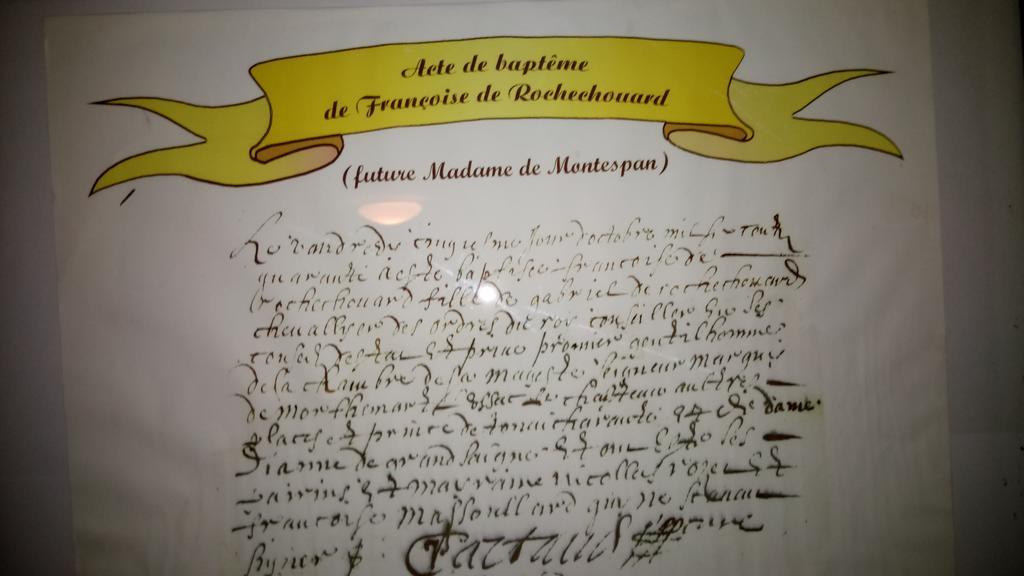 Acte de baptême
de Françoise de Rochechouard
(future Madame de Montespan)
Le vandredy cinquiesme jour doctobre mil six centz
quarante a esté baptisée francoise de
Rochechouard fille de gabriel de rochechouard
chevallyer des ordres du roy conseiller en ses
conseil destat et privé premier gentilhomme
de la chambre de sa majesté seigneur marquis
de morthemart Lussac le chasteau aultres
places et prince de tonnaicharante et de dame
Dianne de grandseigne et ont esté les
pairins et marraine nicollas rozet et
francoise massoullard qui ne scavent
signer